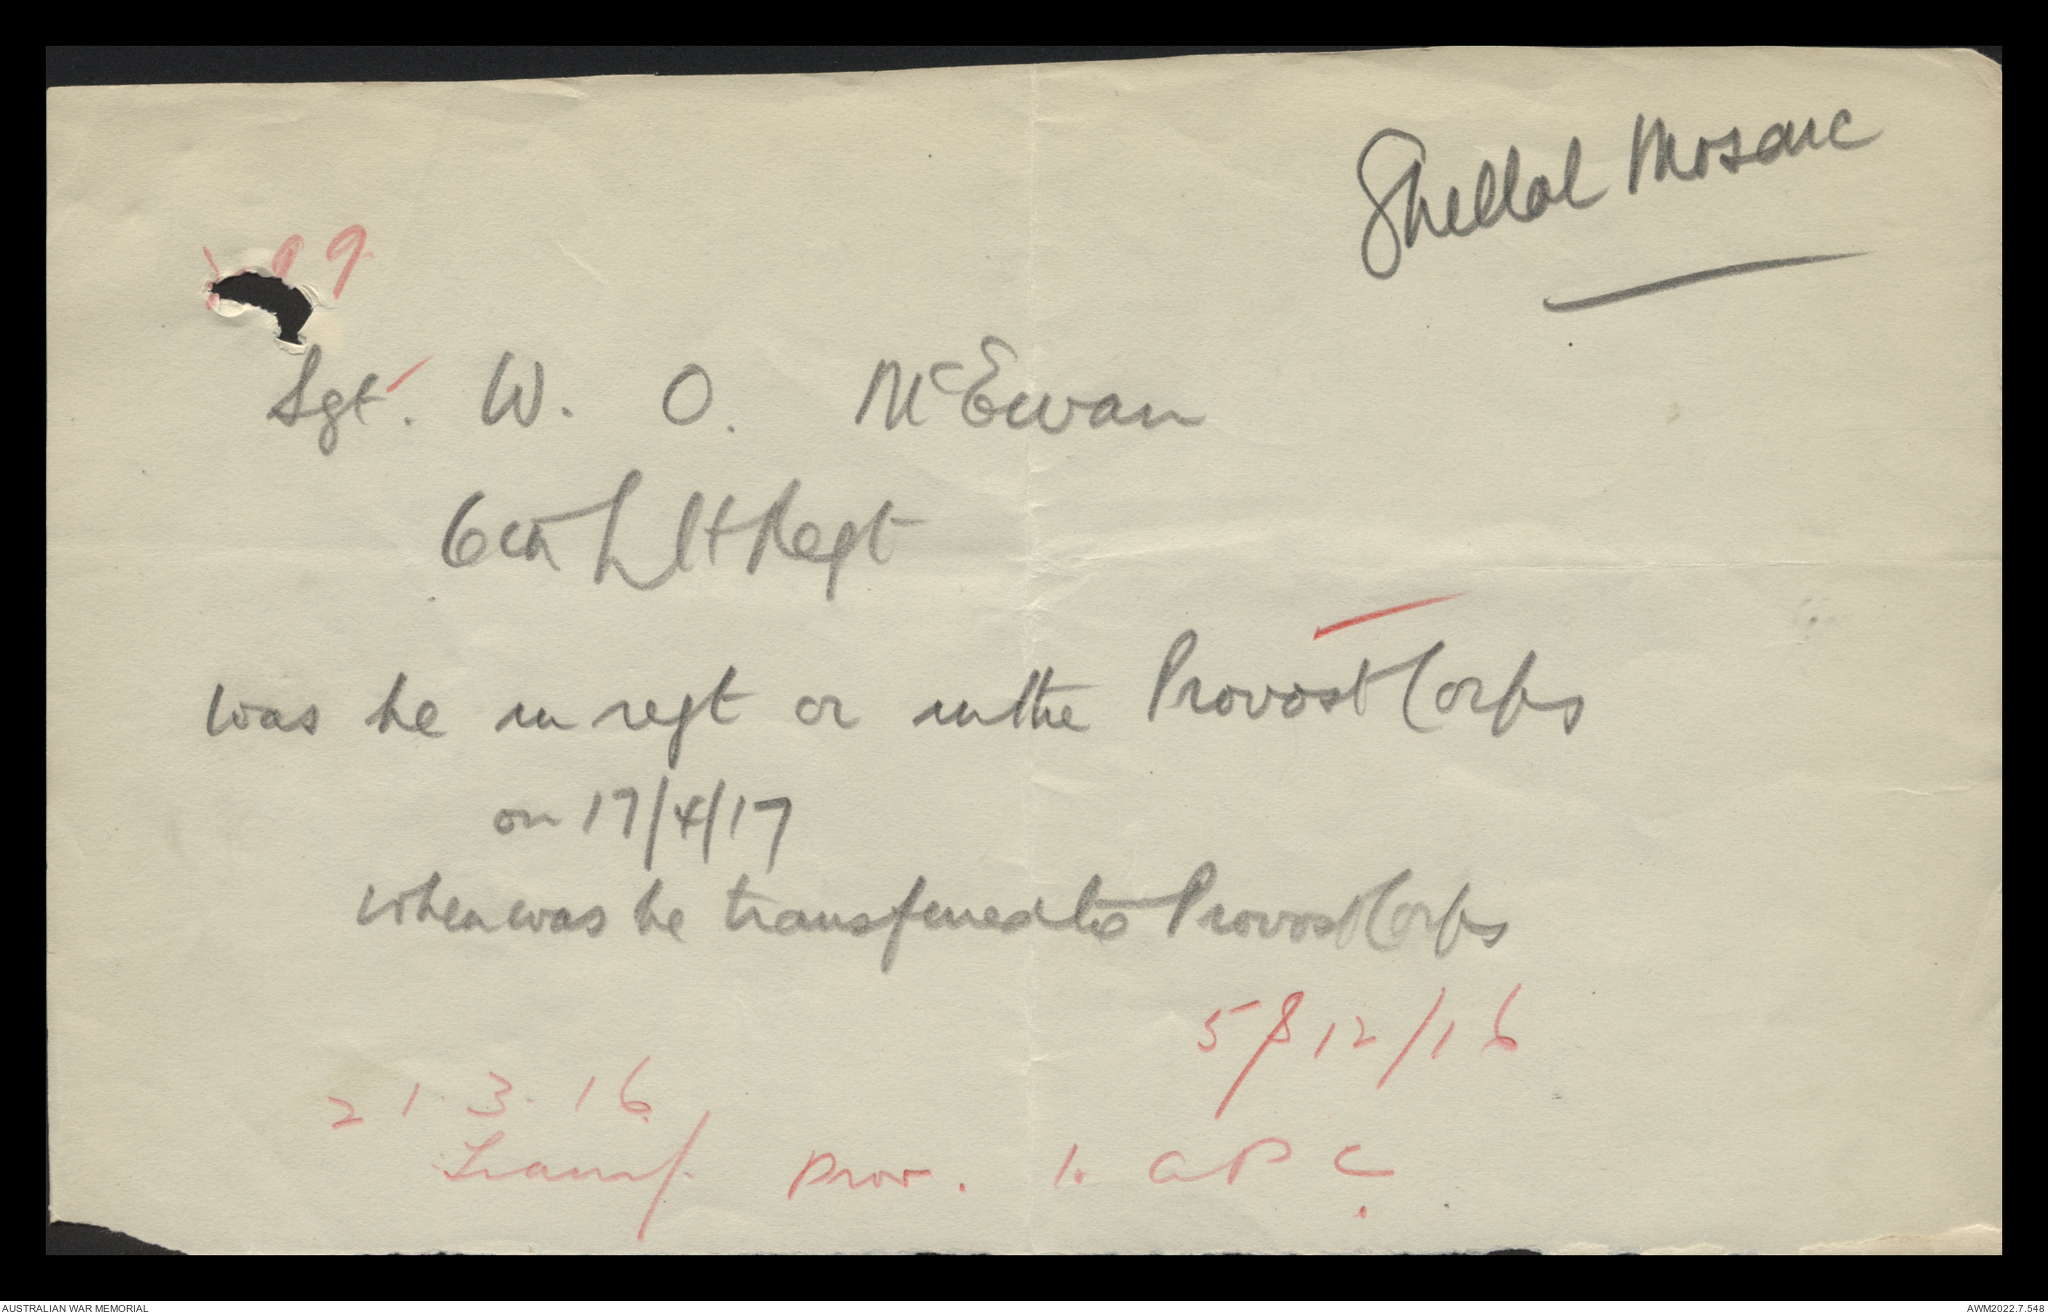 Shellal Mosaic
99
Sgt. W. O. McEwan
6th L H Regt
was he in regt or in the Provost Corps
on 17/4/17
when was he transferred to Provost Corps
5/8 12/16
21.3.16
Transf. Prov. 1. APC.
AUSTRALIAN WAR MEMORIAL
AWM2022.7.548